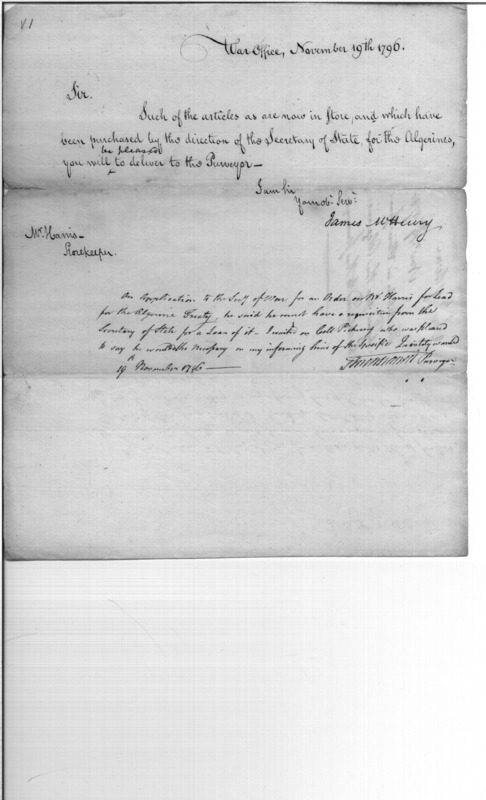 War Office, November 19th 1796.
Sir.
Such of the articles as are now in Store, and which have
been purchased by the direction of the Secretary of State, for the Algerines,
be pleased
you will to deliver to the Purveyor—
I am Sir
Your ob. Serv.
James McHenry
Mr. Harris
Storekeeper.
An Application to the Secy. of War for an Order on Mr Harris for Lead
for the Algerine Treaty, he said he must have a requisition from the
Secretary of State for a Loan of it— I waited on Coll Pickering who was pleased
to say he would the necessary on my informing him of the Specific Quantity wanted
19th November 1796 —
Purveyor